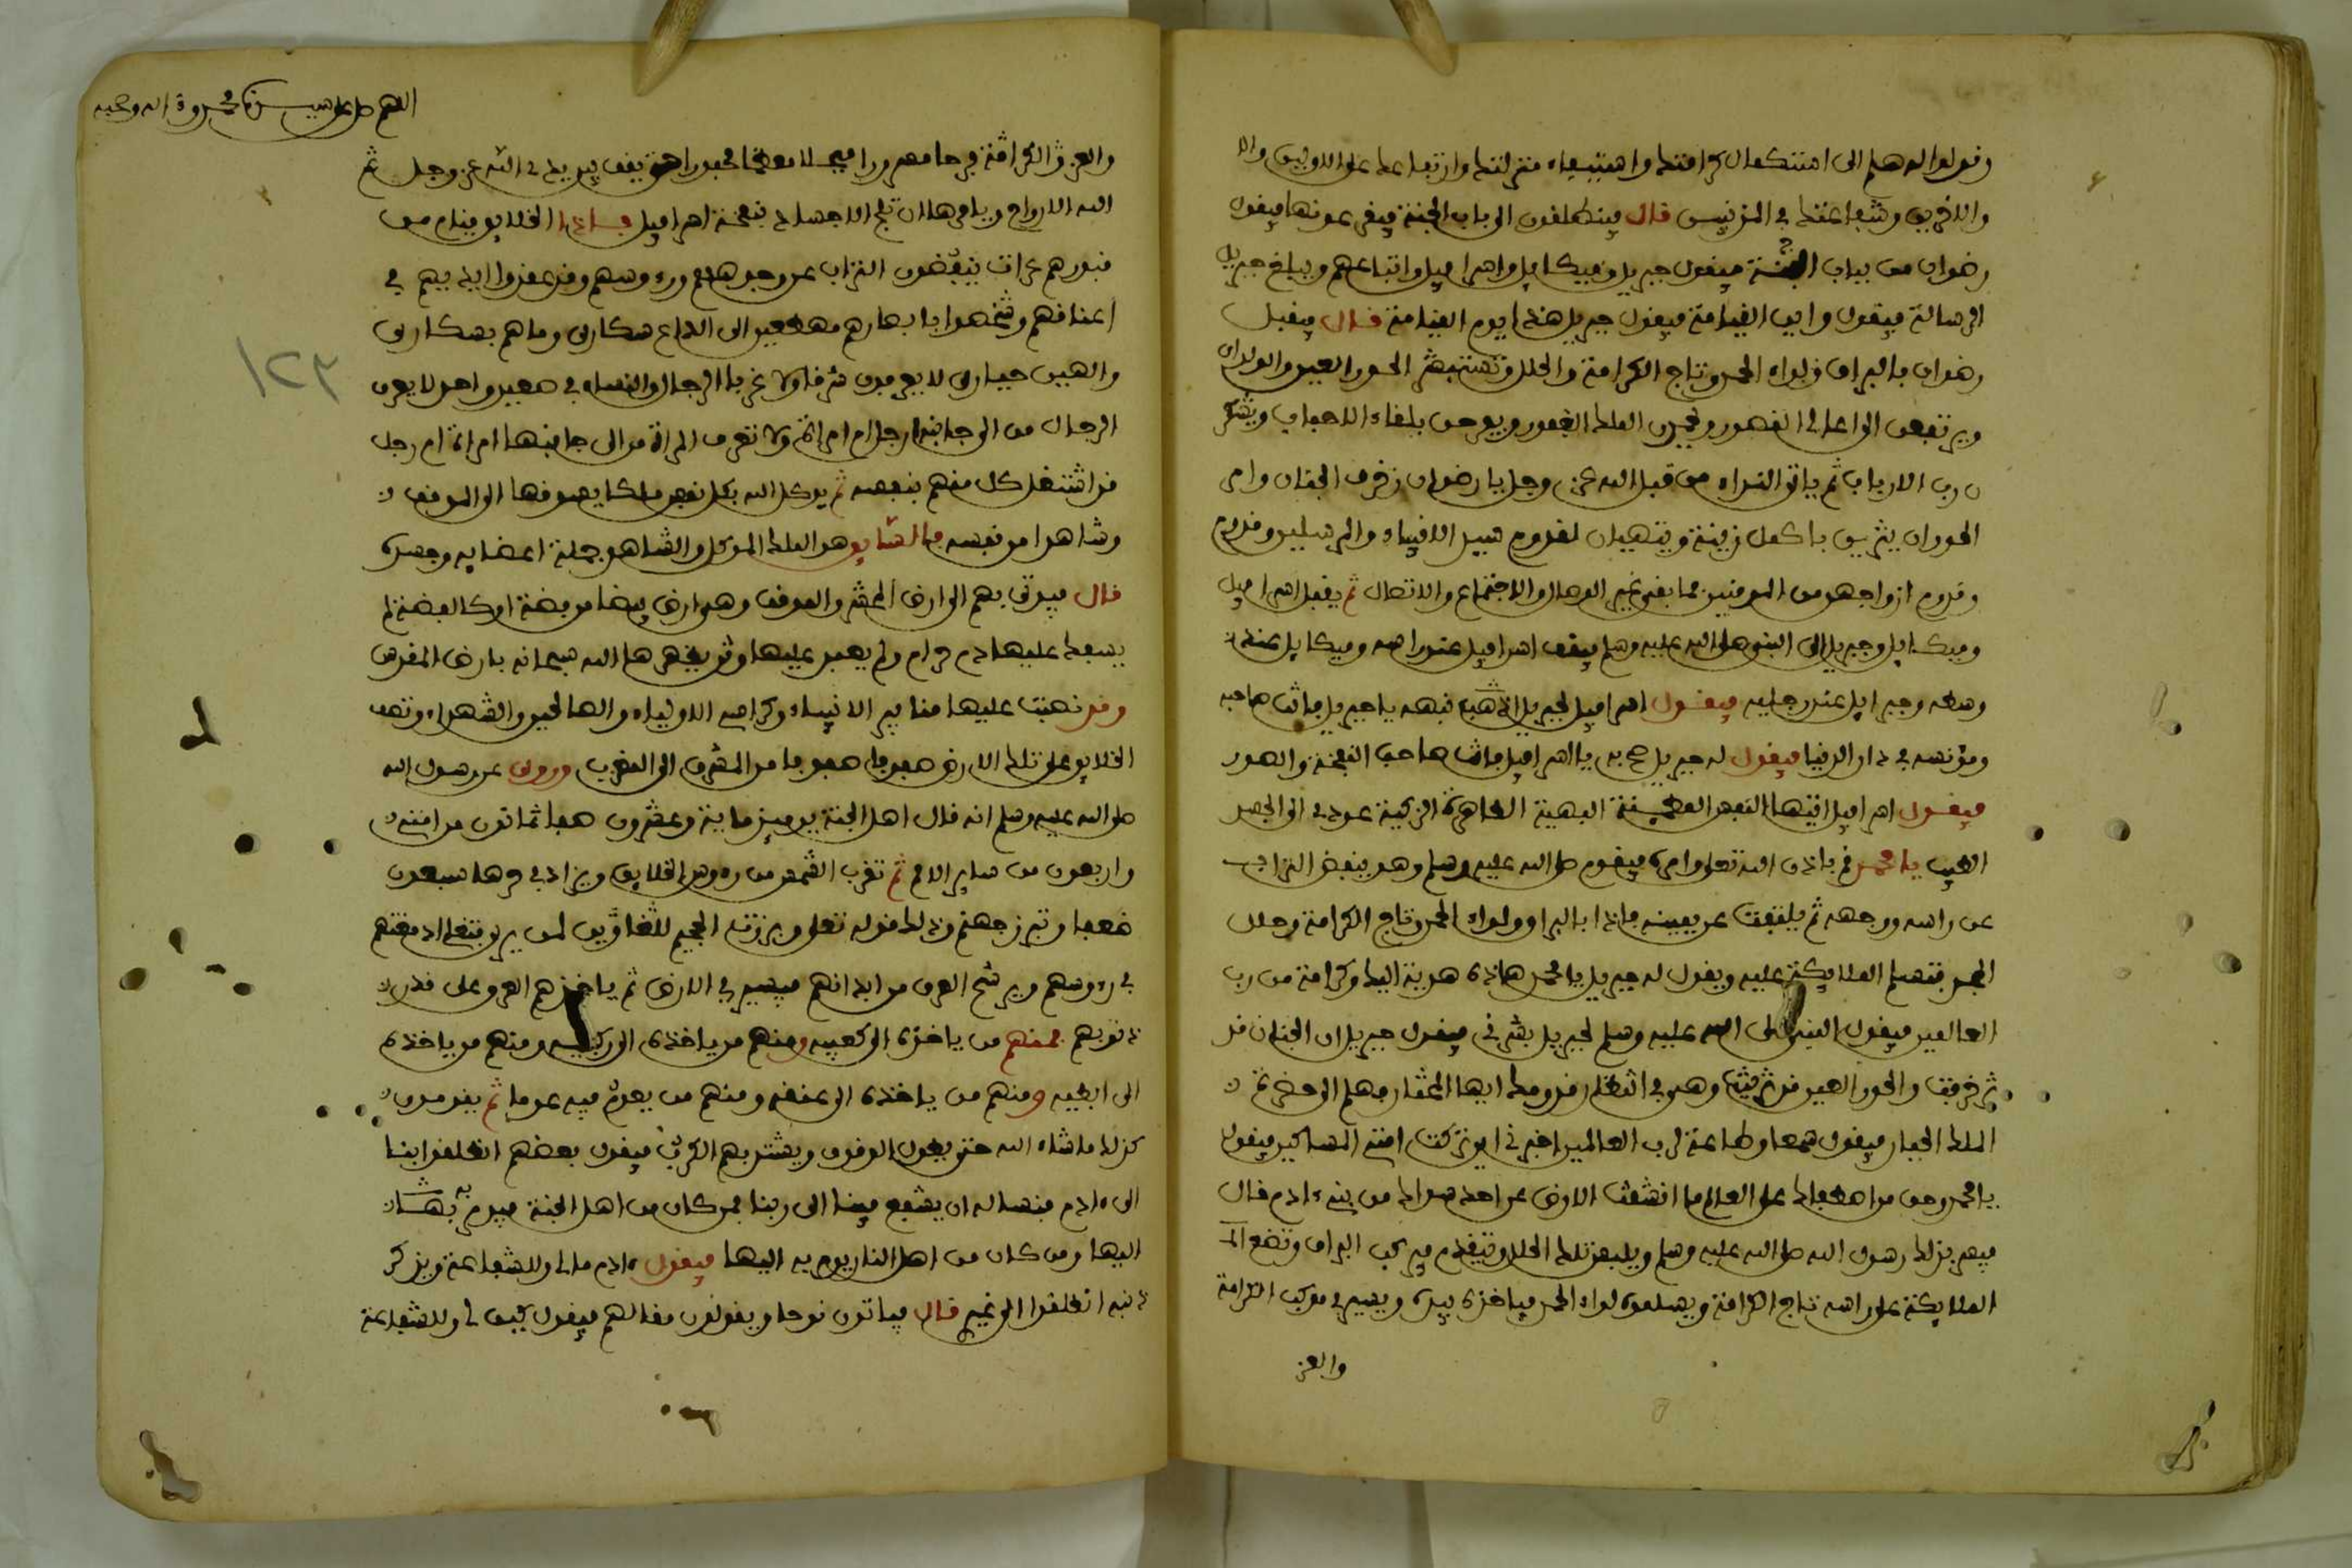 وقولوا له هلم الى استكمال كرامتك واستيفاء منزلتك وارتفاعك على الاولين والا
والاخرين وشفاعتك في المذنبين قال فينطلقون الى باب الجنة فيقرعونها فيقول
رضوان من بباب الجنة فيقول جبريل وميكايل واسرافيل واتباعهم ويبلغ جبريل
الرسالة فيقول واين القيامة فيقول جبريل هذا يوم القيامة قال فيقبل
رضوان بالبراق ولواء الحمد وتاج الكرامة والحلل وتستبشر الحور العين والولدان
ويرتفعن الى اعالي القصور ويحمدن الملك الغفور ويفرحن بلقاء الاحباب ويشكر
ن رب الارباب ثم ياتي النداء من قبل الله عز وجل يا رضوان زخرف الجنان وامر
الحور ان يتزين باكمل زينة ويتهيان لقدوم سيد الانبياء والمرسلين وقدوم
وقدوم ازواجهن من المومنين فما بقي غير الوصال والاجتماع والاتصال ثم يقبل اسرافيل
وميكايل وجبريل الى النبي صلى الله عليه وسلم فيقف اسرافيل عند راسه وميكايل عند
وسطه وجبرايل عند رجليه فيقول اسرافيل لجبريل نبهه يا جبريل فانت صاحبه
ومؤنسه في دار الدنيا فيقول له جبريل صح به يا اسرافيل فانت صاحب النفخة والصور
فيقول اسرافيل ايتها النفس المطمينة البهية الطاهرة الزكية عودي الى الجسد
الطيب يا محمد قم باذن الله تعلى وامره فيقوم صلى الله عليه وسلم وهو ينفض التراب
عن راسه ووجهه ثم يلتفت عن يمينه فاذا بالبراق ولواء الحمد وتاج الكرامة وحلل
المجد فتسلم الملايكة عليه ويقول له جبريل يا محمد هاذه هدية اليك وكرامة من رب
العالمين فيقول النبي صلى الله عليه وسلم لجبريل بشرني فيقول جبريل ان الجنان قد
زخرفت والحور العين قد تزينت وهن في انتظار قدومك ايها المختار فهلم الى حضرة
الملك الجبار فيقول سمعا وطاعة لرب العالمين اخبرني اين تركت امتي المساكين فيقول
يا محمد وحق من اصطفاك على العالم ما انشقت الارض عن احد سواك من بني ءادم قال
فيسر بذلك رسول الله صلى الله عليه وسلم ويلبس تلك الحلل ويتقدم فيركب البراق وتضع الم
الملايكة على راسه تاج الكرامة ويسلمون لواء الحمد فياخذه بيده ويسير في موكب الكرامة
والعز
اللهم صل على سيدنا محمد وءاله وصحبه
والعز والكرامة فرحا مسرورا مبجلا معظما محبورا حتى يقف بين يدي الله عز وجل ثم
الله الارواح ويامرها ان تلج الاجساد بنفخة اسرافيل فاذا الخلايق قيام من
قبورهم عرات ينفضون التراب عن وجوههم ورءوسهم وقد عقدوا ايديهم في
اعناقهم وشخصوا بابصارهم مهطعين الى الداع سكارى وما هم بسكارى
والهين حيارى لا يعرفون شرقا ولا غربا الرجال والنساء في صعيد واحد لا يعرف
الرجال من الى جانبه ارجل ام امراة ولا تعرف المراة من الى جانبها امراة ام رجل
قد اشتغل كل منهم بنفسه ثم يوكل الله بكل نفس ملكا يسوقها الى الموقف
وشاهدا من نفسه فالسايق هو الملك الموكل والشاهد جملة اعضايه وجسده
قال فيوتى بهم الى ارض المحشر والموقف وهي ارض بيضا من فضة او كالفضة لم
يسفك عليها دم حرام ولم يعبد عليها وثن يظهرها الله سبحانه بارض المقدس
وقد نصبت عليها منابر الانبياء وكراسي الاولياء والصالحين والشهداء وتصف
الخلايق على تلك الارض صفوفا صفوفا من المشرق الى المغرب وروى عن رسول الله
صلى الله عليه وسلم انه قال اهل الجنة يوميذ ماية وعشرون صفا ثمانون من امتي
واربعون من ساير الامم ثم تقرب الشمس من رءوس الخلايق ويزاد في حرها سبعون
ضعفا وتبرز جهنم وذلك قوله تعلى وبرزت الجحيم للغاوين لمن يرى فتغلي ادمغتهم
في رءوسهم ويرشح العرق من ابدانهم فيسير في الارض ثم ياخذهم العرق على قدر
ذنوبهم فمنهم من ياخذه الى كعبيه ومنهم من ياخذه الى ركبتيه ومنهم من ياخذه
الى ابطيه ومنهم من ياخذه الى عنقه ومنهم من يعوم فيه عوما ثم يقومون
كذلك ماشاء الله حتى يطول الوقوف ويشتد بهم الكرب فيقول بعضهم انطلقوا بنا
الى ءادم فنساله ان يشفع فينا الى ربنا فمن كان من اهل الجنة فيومر به
اليها ومن كان من اهل النار يومر به اليها فيقول ءادم مالي وللشفاعة ويذكر
ذنبه انطلقوا الى غيري قال فياتون نوحا ويقولون مقالهم فيقول كيف لي وللشفاعة
١٢٣